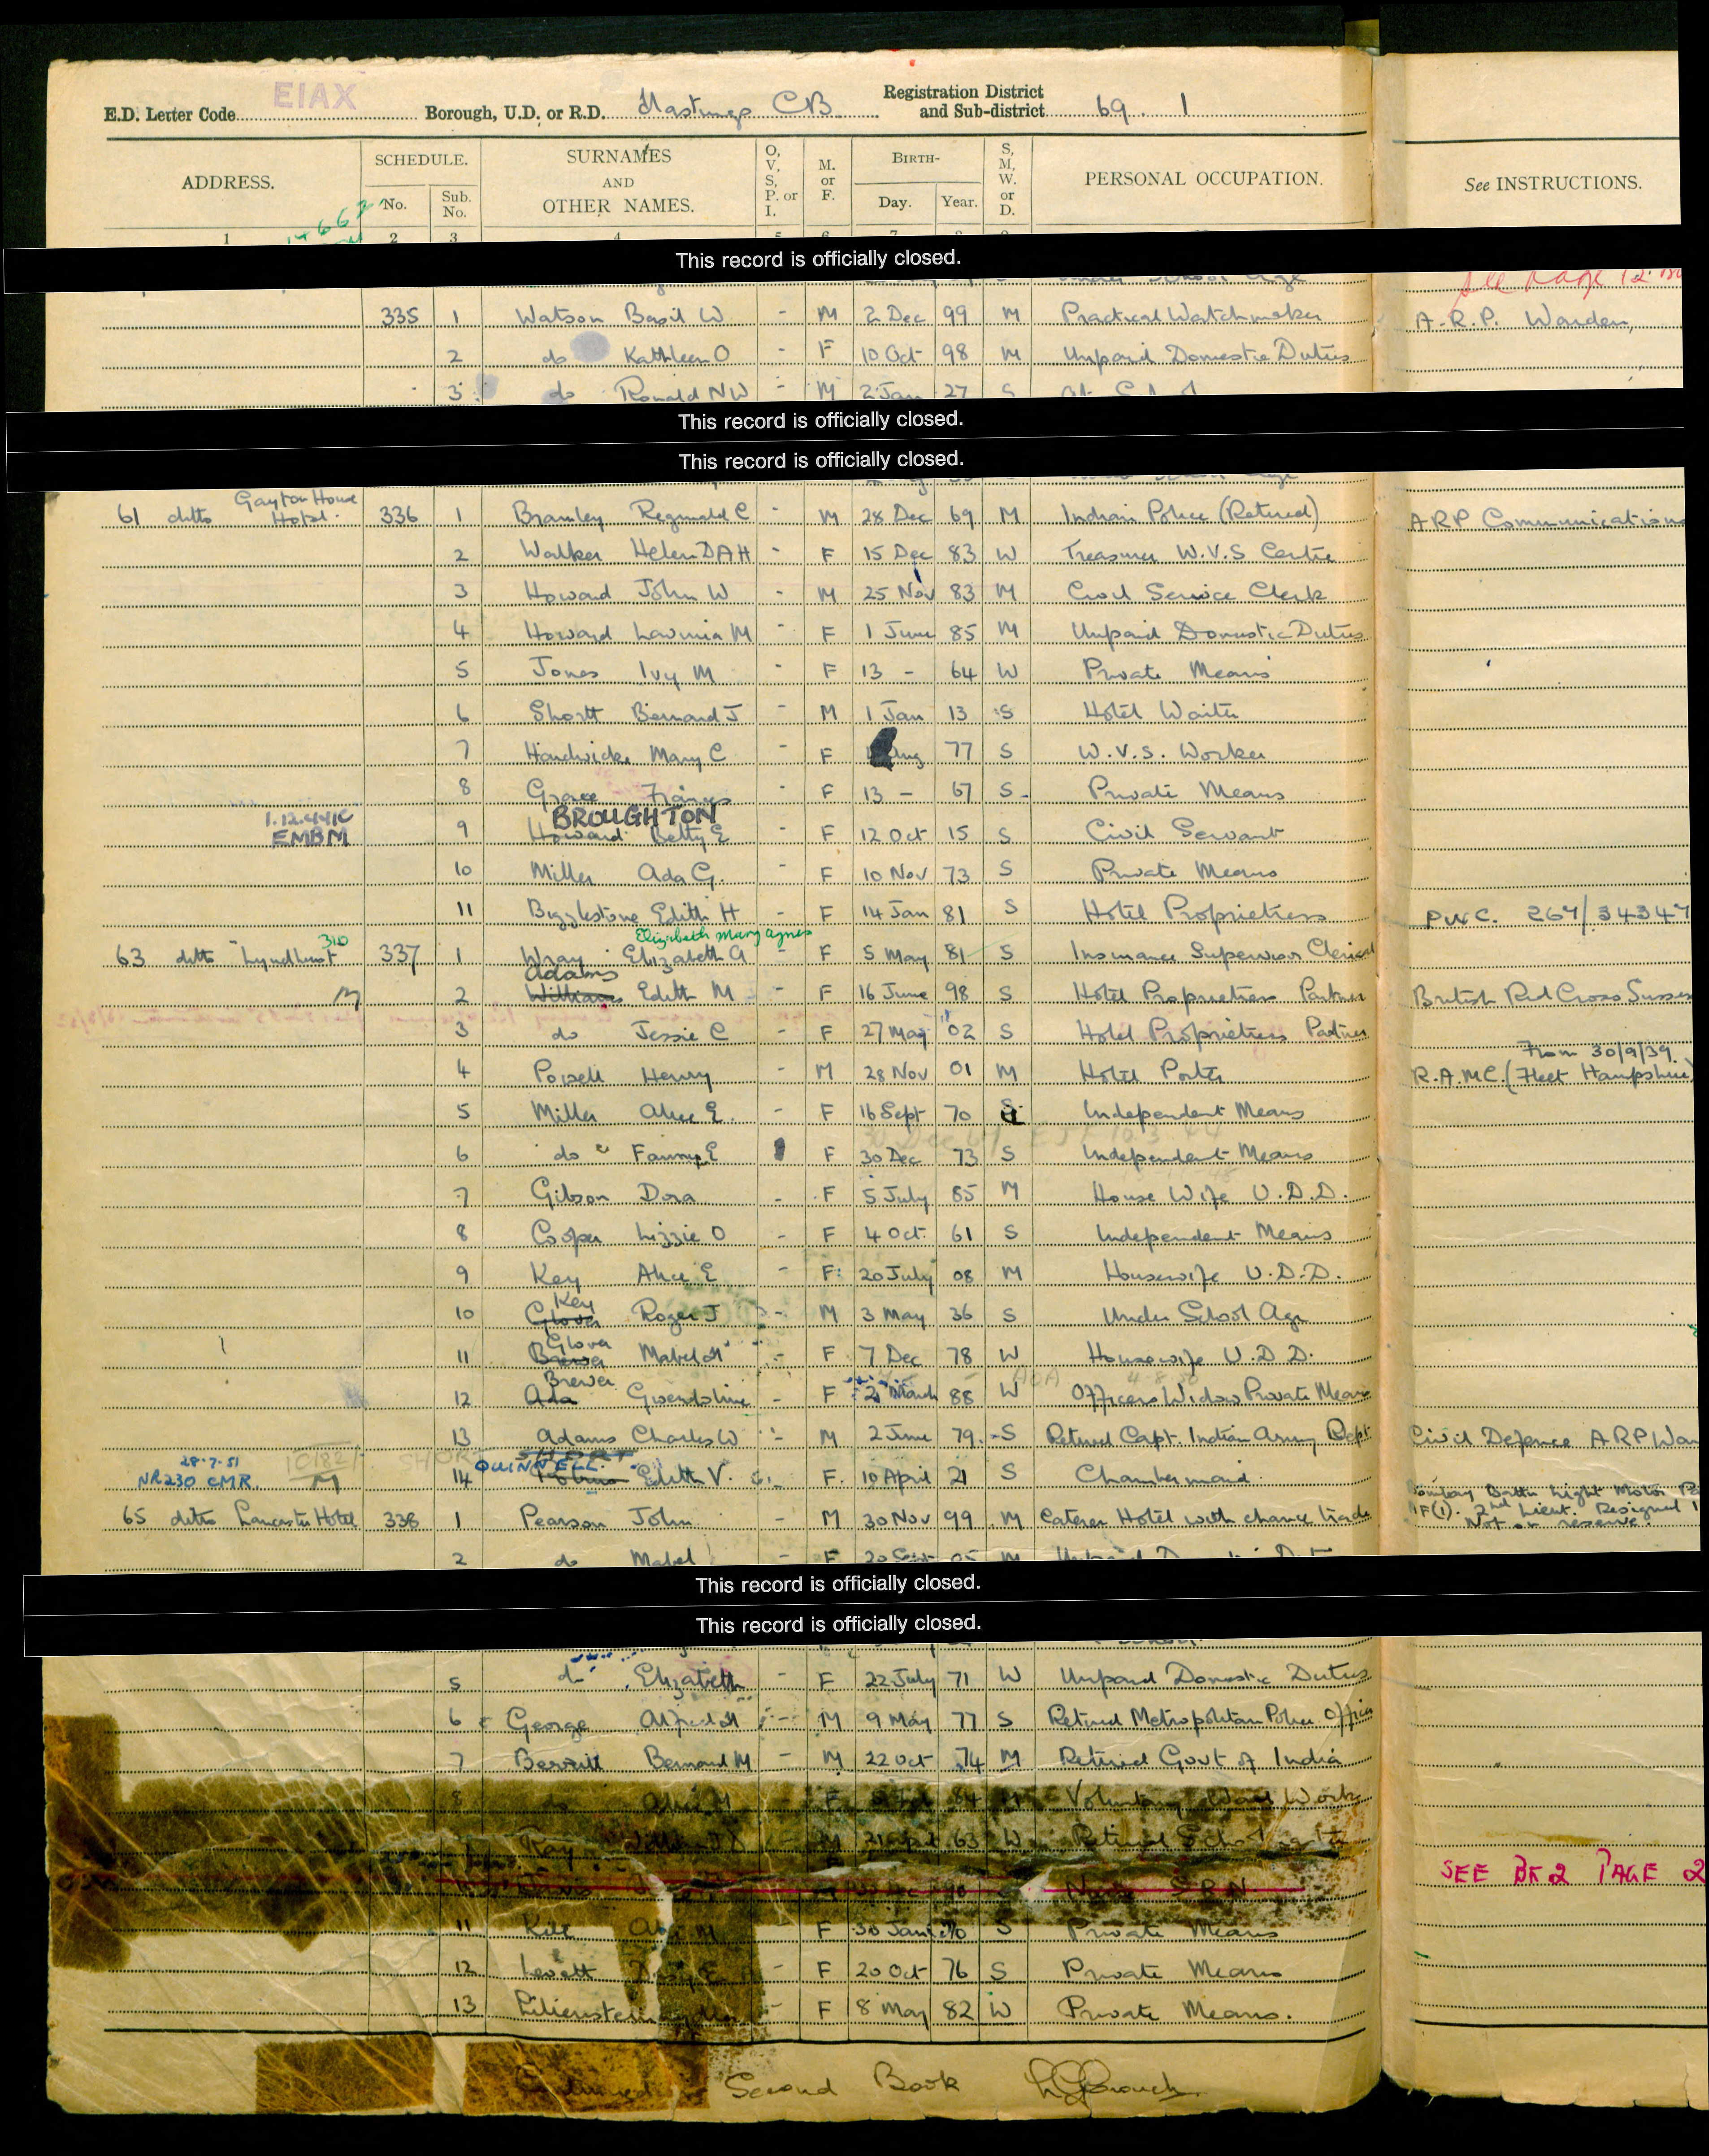 EIAX
E.D. Letter Code Borough, U.D. or R.D. Hastings CB Registration District and Sub-district 69. 1
ADDRESS. SCHEDULE. No. Sub. No. SURNAMES AND OTHER NAMES. O, V, S, P. or I. M. or F. BIRTH- Day. Year. S, M, W. or D. PERSONAL OCCUPATION. See INSTRUCTIONS.
1 2 3 4 5 6 7 8 9
This record is officially closed.
335 1 Watson Basil W - M 2 Dec 99 M Practical Watchmaker A.R.P. Warden,
2 do Kathleen O - F 10 Oct 98 M Unpaid Domestic Duties
3 do Ronald N W - M 2 Jan 27 S
This record is officially closed.
This record is officially closed.
61 ditto Gayton House Hotel 336 1 Bramley Reginald C - M 28 Dec 69 M Indian Police (Retired) ARP Communications
2 Walker Helen D A H - F 15 Dec 83 W Treasurer W.V.S Centre
3 Howard John W - M 25 Nov 83 M Civil Service Clerk
4 Howard Lavinia M - F 1 June 85 M Unpaid Domestic Duties
5 Jones Ivy M - F 13 - 64 W Private Means
6 Shortt Bernard J - M 1 Jan 13 S Hotel Waiter
7 Hardwicke Mary C - F Aug 77 S W.V.S. Worker
8 Grace Frances - F 13 - 67 S Private Means
1.12.44 EMBM BROUGHTON
9 Howard Betty E - F 12 Oct 15 S Civil Servant
10 Miller Ada G. - F 10 Nov 73 S Private Means
11 Bigglestone Edith H - F 14 Jan 81 S Hotel Proprietress PWC. 267/34347
Elizabeth Mary Agnes
63 ditto Lyndhurst 337 1 Wray Elizabeth A - F 5 May 81 S Insurance Supervisor Clerical
Adams
M 2 Williams Edith M - F 16 June 98 S Hotel Proprietress Partner British Red Cross Sussex
3 do Jessie C - F 27 May 02 S Hotel Proprietress Partner
From 30/9/39.
4 Powell Henry - M 28 Nov 01 M Hotel Porter R.A.M.C. (Fleet Hampshire)
5 Miller Alice E. - F 16 Sept 70 S Independent Means
6 do Fanny E F 30 Dec 73 S Independent Means
7 Gibson Dora - F 5 July 85 M House Wife U.D.D.
8 Cooper Lizzie O - F 4 Oct 61 S Independent Means
9 Key Alice E - F 20 July 08 M Housewife U.D.D.
Key
10 Glover Roger J - M 3 May 36 S Under School Age
Glover
11 Brewer Mabel H - F 7 Dec 78 W Housewife U.D.D.
Brewer
12 Ada Gwendoline - F 2 March 88 W Officers Widow Private Means
13 Adams Charles W - M 2 June 79 S Retired Capt. Indian Army Dept Civil Defence ARP War
28.7.51 NR230 CMR. M SHORT QUINNELL
14 Edith V. - F 10 April 21 S Chambermaid
Bombay Battn Light Motor
IF(1). 2nd Lieut. Resigned
Not on reserve.
65 ditto Lancaster Hotel 338 1 Pearson John - M 30 Nov 99 M Caterer Hotel with chance trade
2 do Mabel - F 20 Sept 05 M
This record is officially closed.
This record is officially closed.
5 do Elizabeth - F 22 July 71 W Unpaid Domestic Duties
6 George Alfred H - M 9 May 77 S Retired Metropolitan Police Officer
7 Bernard M - M 22 Oct 74 M Retired Govt of India
8 do F 84 Voluntary Work
Ray M 21 April 63 W Retired
SEE BK 2 PAGE 2
11 M F 30 Jan 70 S Private Means
12 Levett - F 20 Oct 76 S Private Means
13 - F 8 May 82 W Private Means.
Continued Second Book